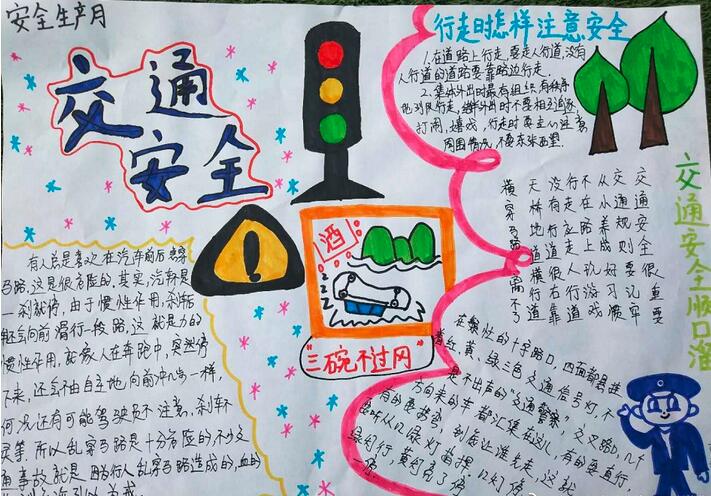 安全生产月
交通
安全
行走时怎样注意安全
1.在道路上行走,要走人行道,没有
人行道的道路要靠路边行走.
2.集体外出时最有组织、有秩序
地列队行走,结伴外出时不要相互追逐,
打闹、嬉戏,行走时要专心注意
周围情况,不要东张西望.
交通安全顺口溜
交通安全很重要
交通规则要记牢
从小养成好习惯
不在路上玩游戏
行走应走人行道
没有行道往右靠
天桥地道横行道
横穿马路离不了
酒
"三碗不过冈"
有人总是喜欢在汽车前后穿
马路,这是很危险的,其实,汽车是
一刹就停,由于惯性作用,刹车后
车还会向前滑行一段路,这就是力的
惯性作用,就像人在奔跑中,突然停
下来,还会不由自主地向前冲几步一样,
何况还有可能驾驶员不注意,刹车不
灵等,所以乱穿马路是十分危险的,不少交
通事故就是因为行人乱穿马路造成的,血的
在繁忙的十字路口,四面都悬挂
着红、黄、绿三色交通信号灯,不
是不出声的"交通警察",交叉路口,几个
方向来的车都汇集在这儿,有的要直行,
有的要拐弯,到底让谁先走,这就
是听从口绿灯指挥,口灯停、
绿灯行,黄灯亮了停
一停,